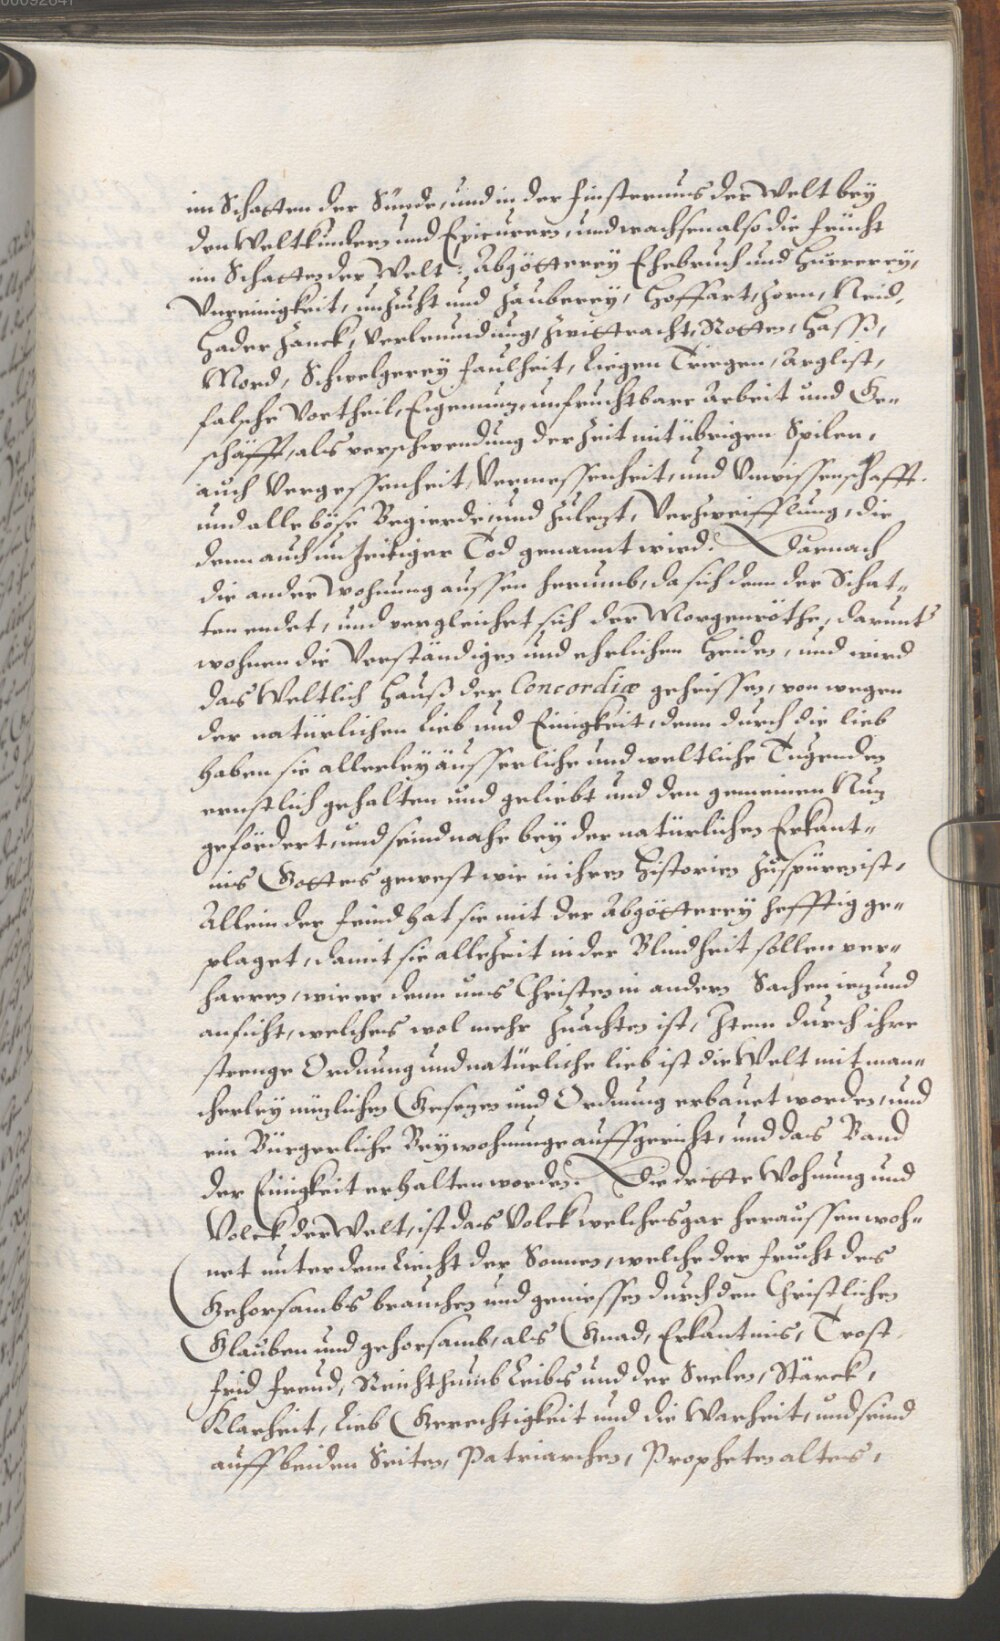 im Schatten der Sünde, und in der Finsternus der Welt bey
den Weltkindern und Epicurern, und wachsen also die frücht
im Schatten der Welt: Abgötterey Ehebruch und Hurrerey,
Unreinigkeit, unzucht und Zauberey, Hoffart, Zorn, Neid,
Hader Zanck, Verleumdung, Zwittracht, Rotten, Hass,
Mord, Schwelgerey faulheit, Liegen Triegen, Arglist,
falsche Vortheil, Eigennuz, unfruchtbare Arbeit und Ge-
schäfft, als verschwendung der Zeit mit übrigen Spilen,
auch Vergessenheit, Vermessenheit, und Unwissenschafft.
und alle böse Begierde, und Zulezt, Verzweifflung, die
dann auch unzeitiger Tod genannt wird. Darnach
die ander Wohnung aussen herumb, da sich dann der Schat-
ten endet, und vergleichet sich der Morgenröthe, darunt
wohnen die Verständigen und ehrlichen Heiden, und wird
das Weltlich Hauß der Concordiæ geheissen, von wegen
der natürlichen Lieb und Einigkeit, denn durch die lieb
haben sie allerley äusserliche und weltliche Tugenden
ernstlich gehalten und geliebt und den gemeinen Nuz
gefördert, und seind nahe bey der natürlichen Erkant-
nis Gottes gewest wie in ihren Historien zuspüren ist,
Allein der feind hat sie mit der Abgötterey hefftig ge-
plaget, damit sie allezeit in der Blindheit sollen ver-
harren, wie er denn uns Christen in andern Sachen iezund
anficht, welches wol mehr zuachten ist, Item durch ihre
strenge Ordnung und natürliche lieb ist die Welt mit man-
cherley nüzlichen Gesezen und Ordnung erbauet worden, und
ein Bürgerliche Beywohnunge auffgericht, und das Band
der Einigkeit erhalten worden. Die dritte Wohnung und
Volck der Welt, ist das Volck welches gar heraussen woh-
net unter dem Liecht der Sonnen, welche der frucht des
Gehorsambs brauchen und geniessen durch den Christlichen
Glauben und gehorsamb, als Gnad, Erkantnis, Trost,
frid freud, Reichthumb Leibs und der Seelen, Stärck,
Klarheit, Lieb Gerechtigkeit und die Warheit, und seind
auff beiden Seiten, Patriarchen, Propheten altes,